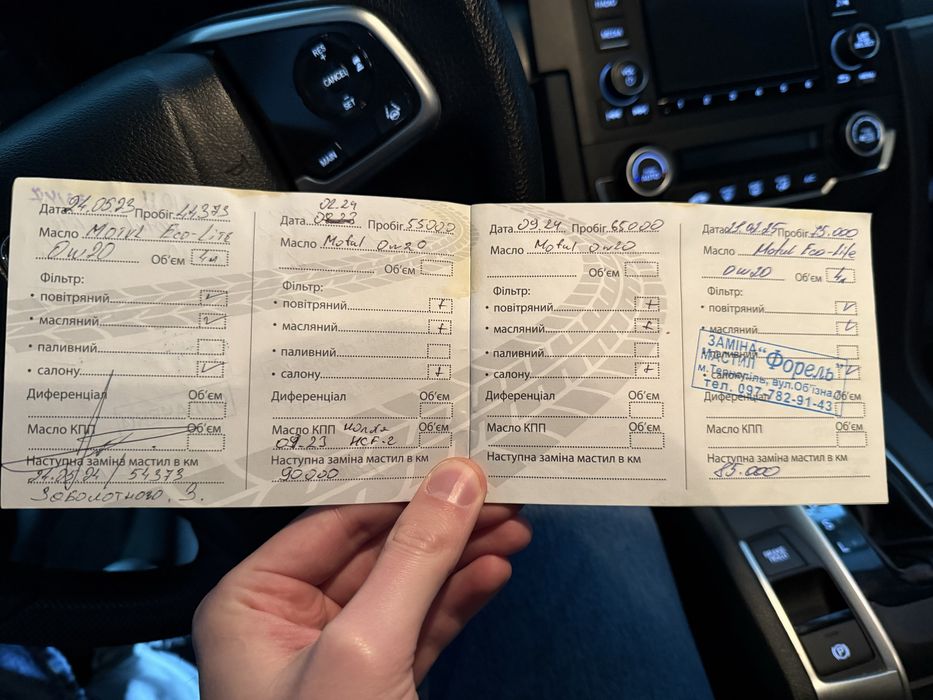 RES
+
CANCEL
SET
MAIN
RADIO
MEDIA
MENU
1 2 3 4 5 6
Дата 24.05 23 Пробіг 44373
Масло Motul Eco-Lite
0w20 Об'єм 4л
Фільтр:
• повітряний
• масляний
• паливний
• салону
Диференціал Об'єм
Масло КПП Об'єм
Наступна заміна мастил в км
54373
Заболотного. З.
02.24
Дата 02.23 Пробіг 55000
Масло Motul 0w20
Об'єм
Фільтр:
• повітряний +
• масляний +
• паливний
• салону +
Диференціал Об'єм
Масло КПП Об'єм
09.23 HCF-2
Наступна заміна мастил в км
90000
Дата 09.24 Пробіг 65000
Масло Motul 0w20
Об'єм
Фільтр:
• повітряний +
• масляний +
• паливний
• салону +
Диференціал Об'єм
Масло КПП Об'єм
Наступна заміна мастил в км
Дата Пробіг 75.000
Масло Motul Eco-Life
0w20 Об'єм 4л
Фільтр:
• повітряний
• масляний
• паливний
• салону
Диференціал Об'єм
Масло КПП Об'єм
Наступна заміна мастил в км
85.000
ЗАМІНА МАСТИЛ "Форель"
м.Тернопіль, вул.Об'їзна
тел. 097-782-91-43
S
L
BRAKE HOLD
P